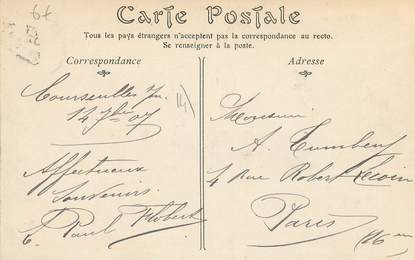 67
Carte Postale
Tous les pays étrangers n'acceptent pas la correspondance au recto.
Se renseigner à la poste.
Correspondance
Courseulles s/m.
14 7bre 07
Affectueux
Souvenirs
Paul Flobert
Adresse
Monsieur
A. Tumbeuf
4 Rue Robert Lecoin
Paris
(16em